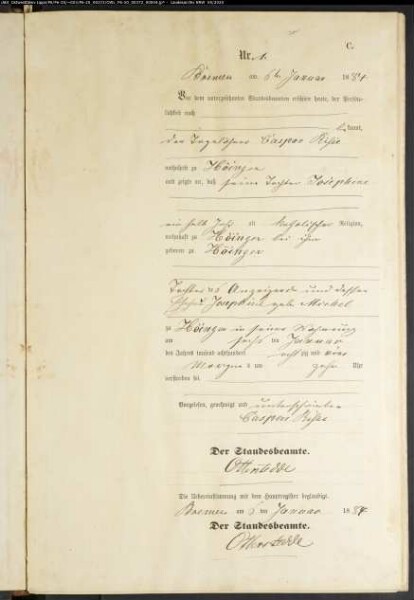 C.
Nr. 1.
Bremen am 6ten Januar 1884
Vor dem unterzeichneten Standesbeamten erschien heute, der Persön-
lichkeit nach
kannt,
der Tagelöhner Caspar Risse
wohnhaft zu Höingen
und zeigte an, daß seine Tochter Josephine
ein halb Jahr alt katholischer Religion,
wohnhaft zu Höingen bei ihm
geboren zu Höingen
Tochter des Anzeigers und dessen
Josephine geb.
zu Höingen in seiner Wohnung
am sechsten Januar
des Jahres tausend achthundert achtzig und vier
Morgens um zehn Uhr
verstorben sei.
Vorgelesen, genehmigt und unterschrieben
Caspar Risse
Der Standesbeamte.
Die Uebereinstimmung mit dem Hauptregister beglaubigt.
Bremen am 6ten Januar 1884
Der Standesbeamte.